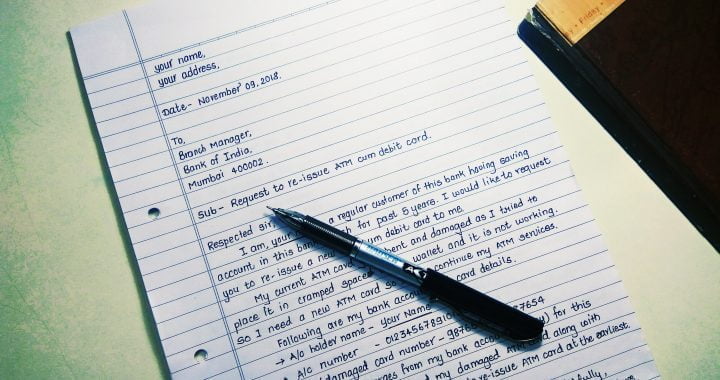 your name,
your address,
Date- November 09, 2018.
To,
Branch Manager,
Bank of India,
Mumbai 400002.
Sub- Request to re-issue ATM cum debit card.
Respected sir, a regular customer of this bank having saving
I am, your account in this bank for past 5 years. I would like to request
you to re-issue a new cum debit card to me.
My current ATM card bent and damaged as I tried to
place it in cramped space wallet and it is not working.
So I need a new ATM card so continue my ATM services.
Following are my bank account card details.
→ A/c holder name - your Name
A/c number - 012345678910
damaged card number - 9876 7654
charges from my bank account for this
my damaged ATM card along with
re-issue ATM card at the earliest.
Friday